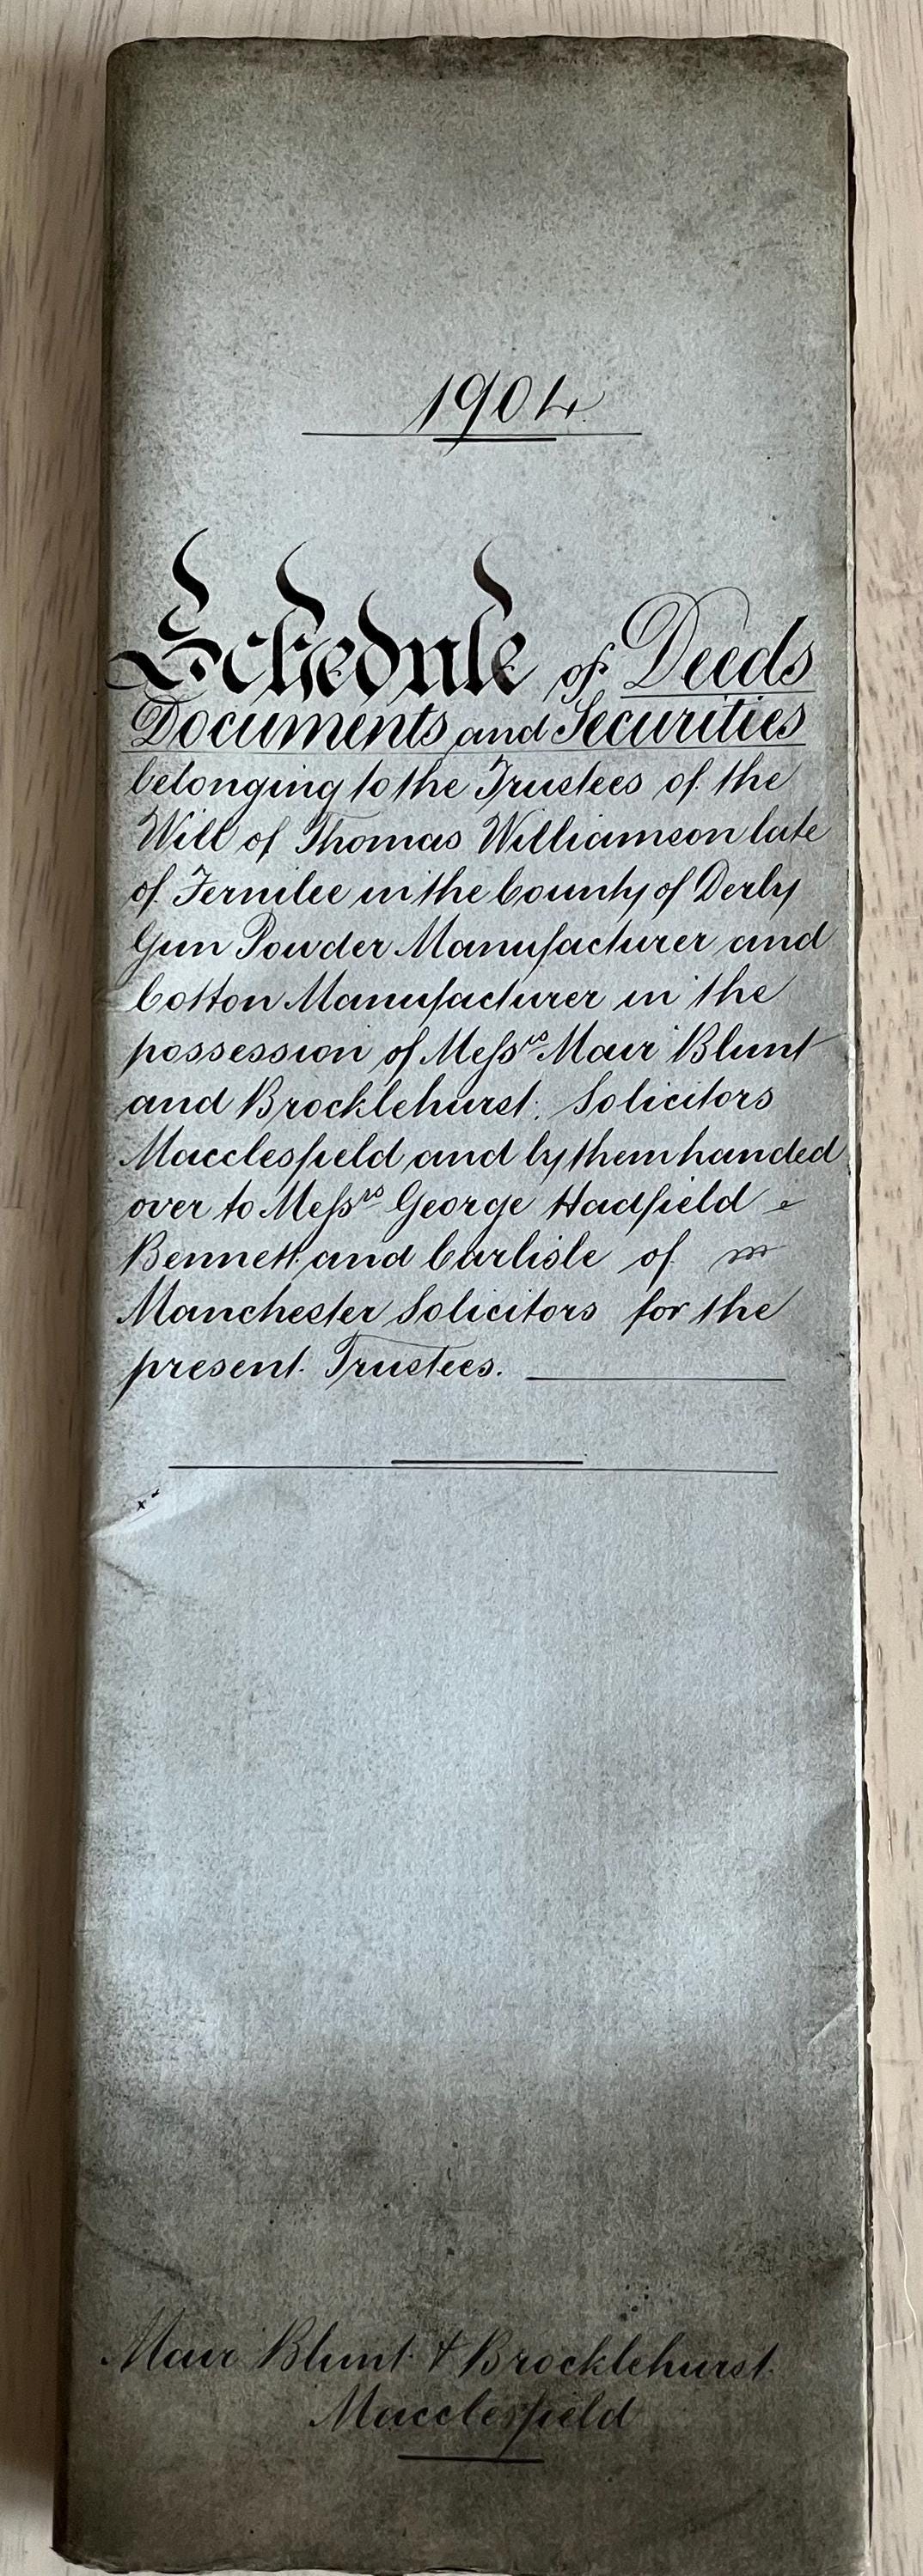 1904
Schedule of Deeds
Documents and Securities
belonging to the Trustees of the
Will of Thomas Williamson late
of Fernilee in the County of Derby
Gun Powder Manufacturer and
Cotton Manufacturer in the
possession of Messrs Mair Blunt
and Brocklehurst. Solicitors
Macclesfield and by them handed
over to Messrs George Hadfield
Bennett and Carlisle of
Manchester Solicitors for the
present Trustees.
Mair Blunt & Brocklehurst
Macclesfield